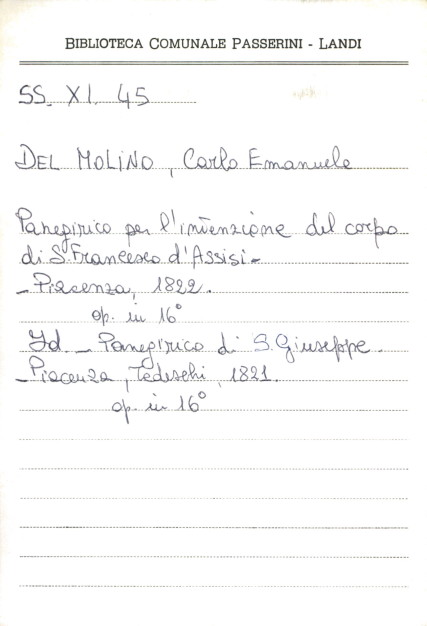 BIBLIOTECA COMUNALE PASSERINI - LANDI
SS. XI. 45
DEL MOLINO, Carlo Emanuele
Panegirico per l'invenzione del corpo
di S. Francesco d'Assisi -
- Piacenza, 1822.
op. in 16°
Id. - Panegirico di S. Giuseppe.
- Piacenza, Tedeschi, 1821.
op. in 16°